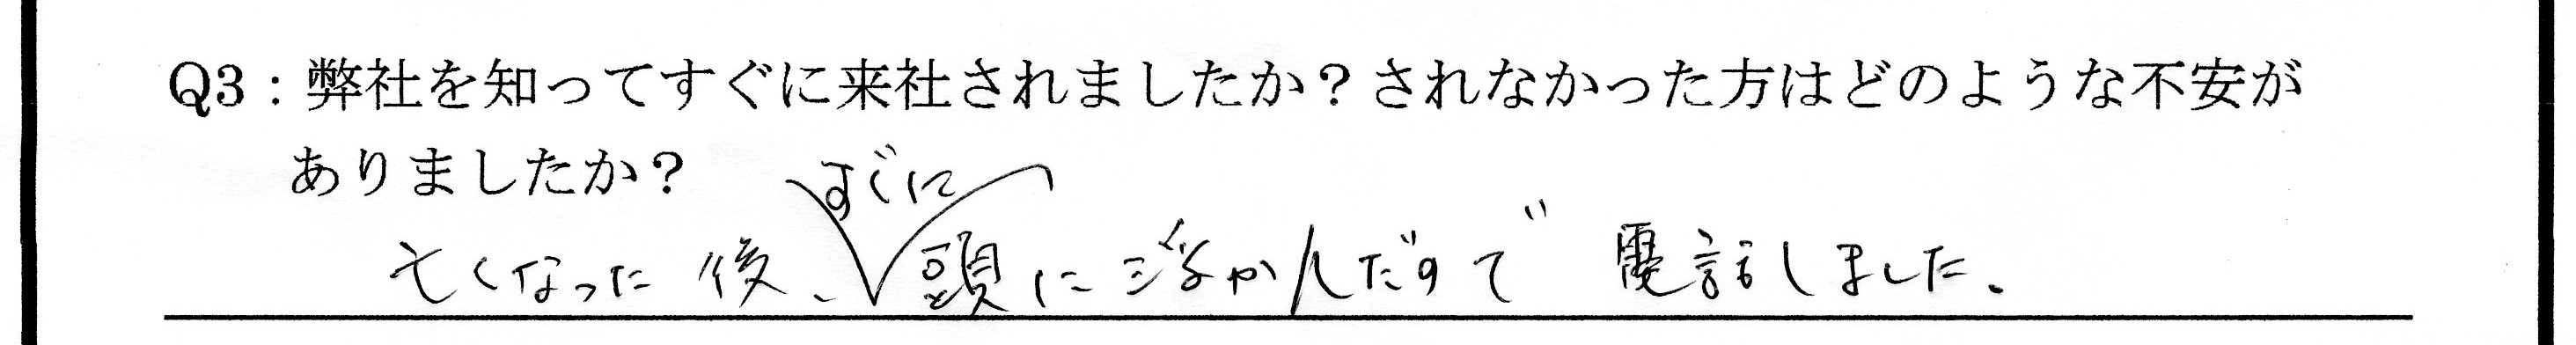 Q3：弊社を知ってすぐに来社されましたか？されなかった方はどのような不安が
ありましたか？
すぐに
亡くなった後、頭に浮かんだので電話しました。